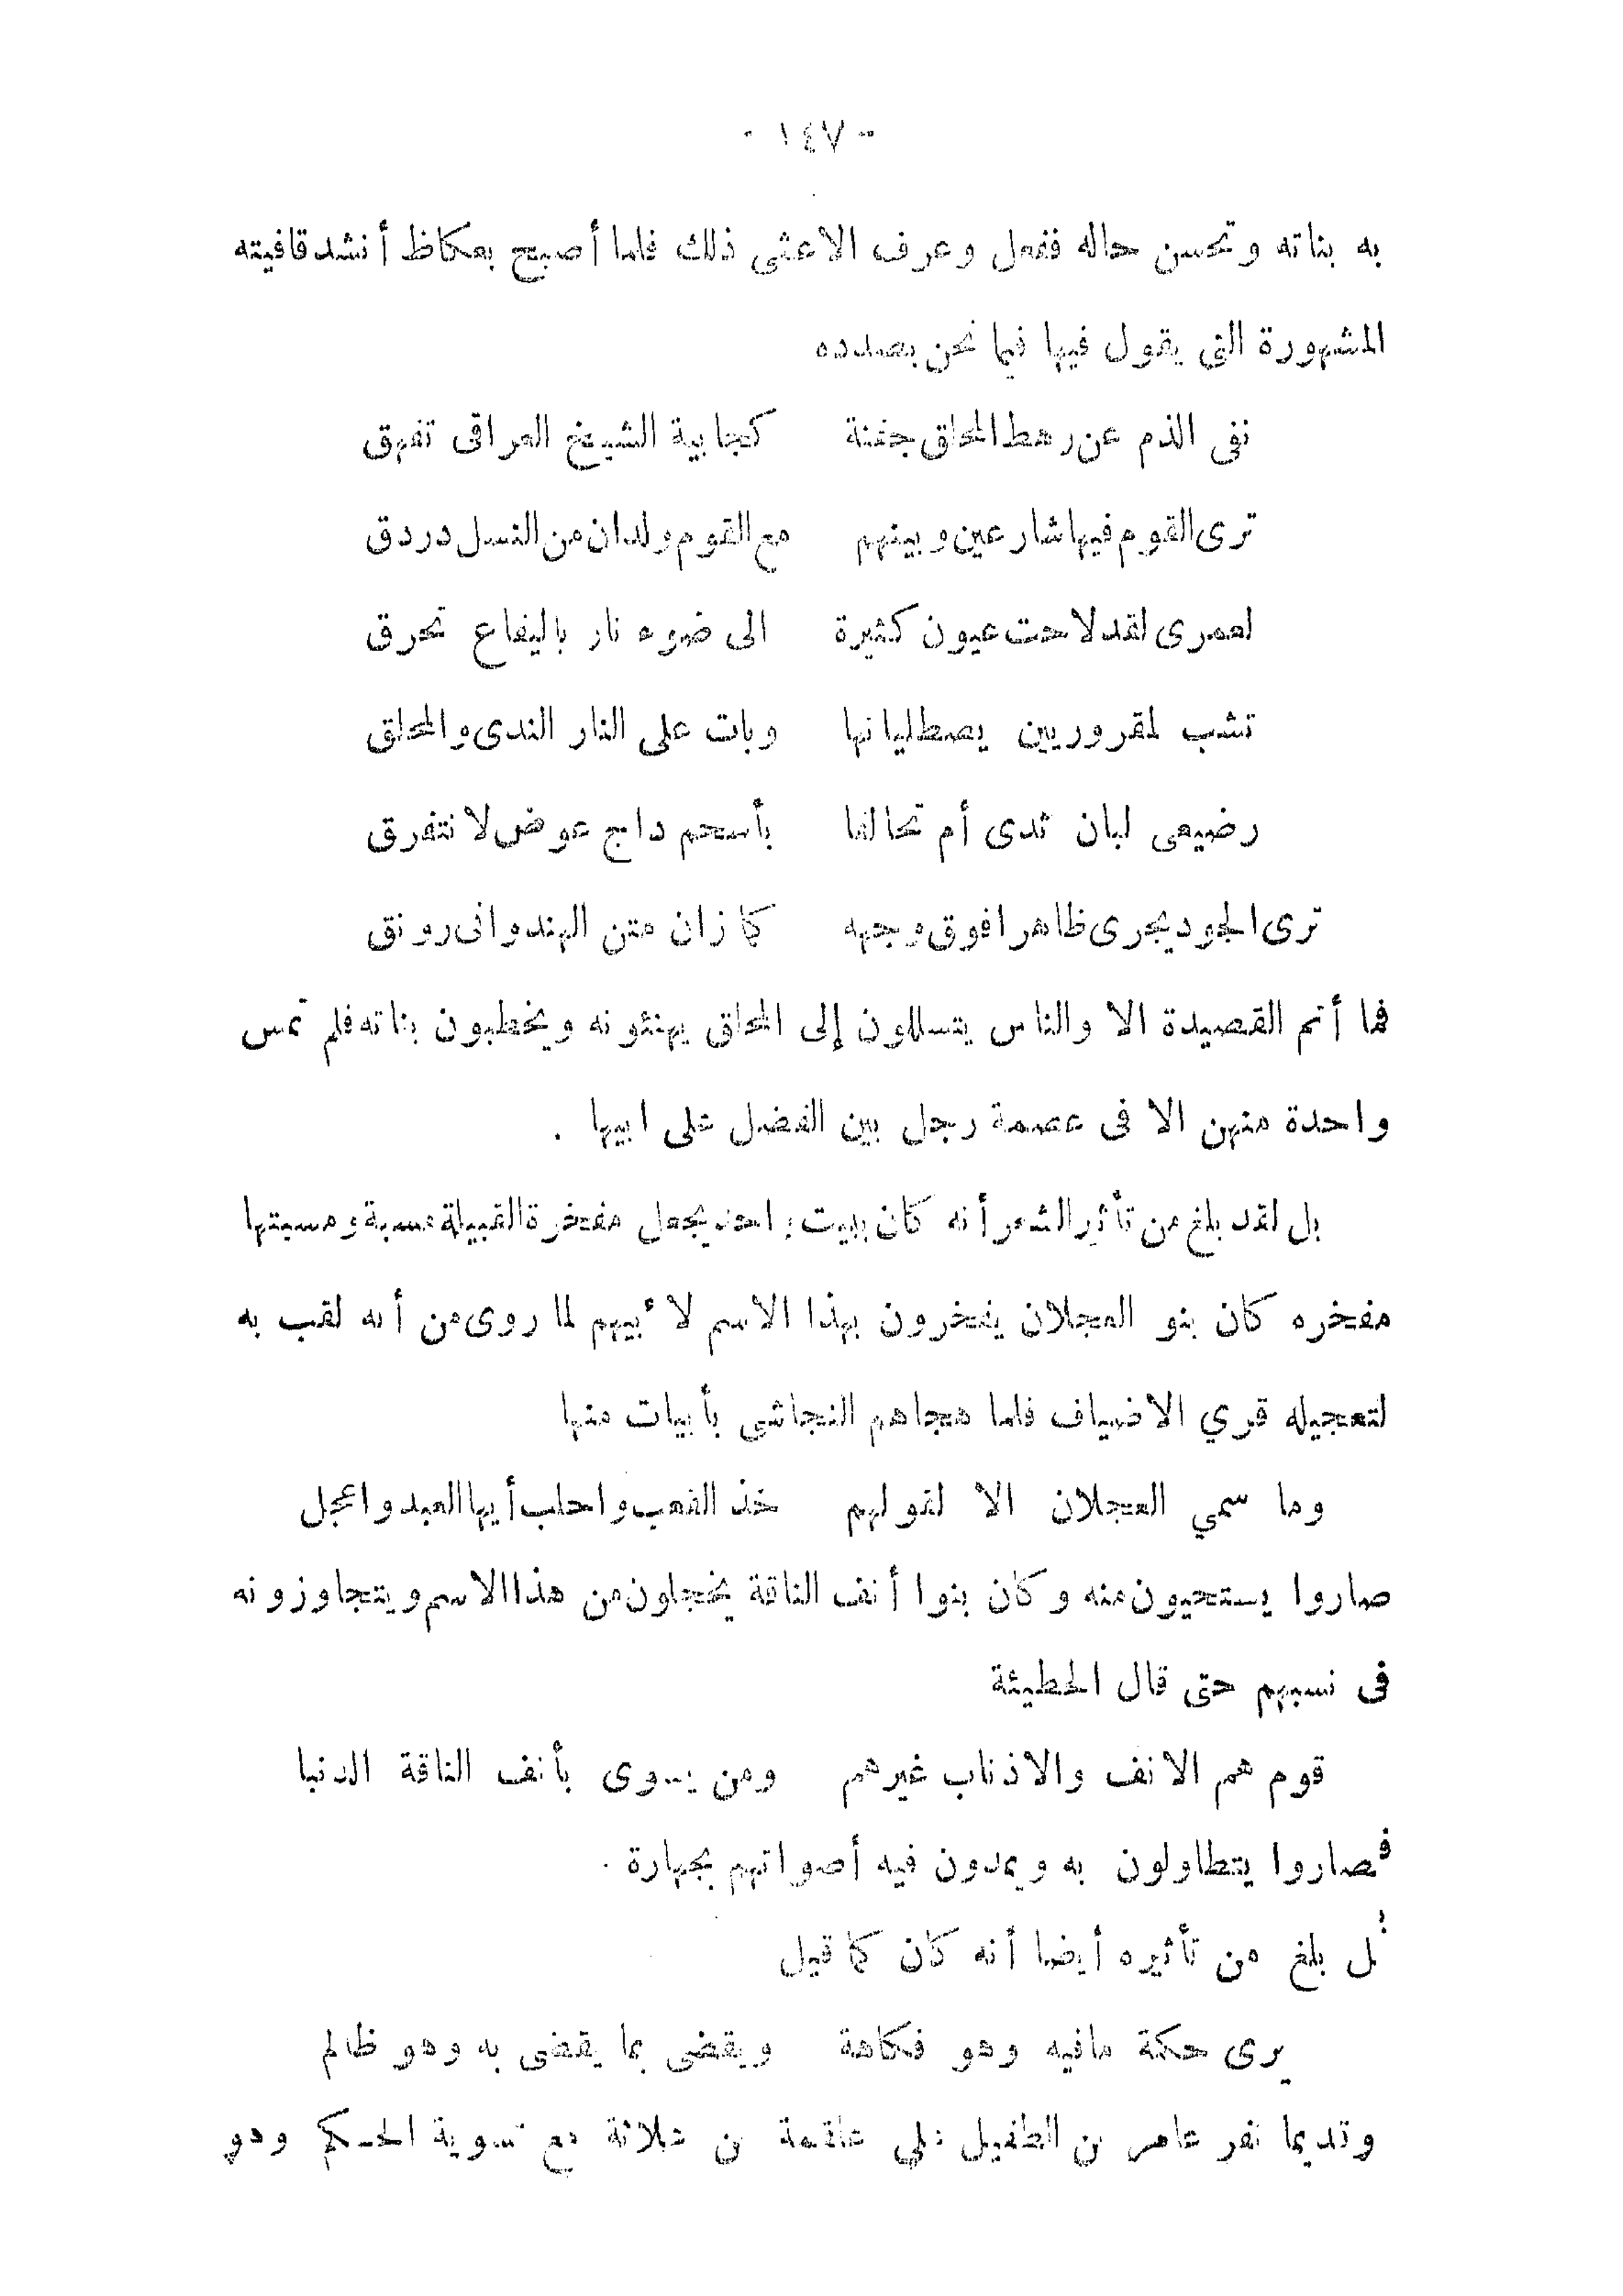 - ١٤٧ -
به بناته وتحسن حاله ففعل وعرف الاعشى ذلك فلما أصبح بعكاظ أنشد قافيته
المشهورة التى يقول فيها فيما نحن بصدده
نفى الذم عن رهط المحلق جفنة كجابية الشيخ العراقى تفهق
ترى القوم فيها شارعين وبينهم مع القوم ولدان من النسل دردق
لعمرى لقد لاحت عيون كثيرة الى ضوء نار باليفاع تحرق
تشب لمقرورين يصطليانها وبات على النار الندى والمحلق
رضيعى لبان ثدى أم تحالفا بأسحم داج عوض لا نتفرق
ترى الجود يجرى ظاهرا فوق وجهه كما زان متن الهندوانى رونق
فما أتم القصيدة الا والناس يتسللون إلى المحلق يهنئونه ويخطبون بناته فلم تمس
واحدة منهن الا فى عصمة رجل بين الفضل على ابيها .
بل لقد بلغ من تأثير الشعر أنه كان ببيت واحد يجعل مفخرة القبيلة مسبة ومسبتها
مفخره كان بنو العجلان يفخرون بهذا الاسم لأبيهم لما روى من أنه لقب به
لتعجيله قري الاضياف فلما هجاهم النجاشى بأبيات منها
وما سمي العجلان الا لقولهم خذ القعب واحلب أيها العبد واعجل
صاروا يستحيون منه وكان بنوا أنف الناقة يخجلون من هذا الاسم ويتجاوزونه
فى نسبهم حتى قال الحطيئة
قوم هم الانف والاذناب غيرهم ومن يسوى بأنف الناقة الذنبا
فصاروا يتطاولون به ويمدون فيه أصواتهم بجهارة .
بل بلغ من تأثيره أيضا أنه كان كما قيل
يرى حكمة مافيه وهو فكاهة ويقضى بما يقضى به وهو ظالم
وقديما نفر عامر بن الطفيل على علقمة بن علاثة مع تسوية الحكم وهو